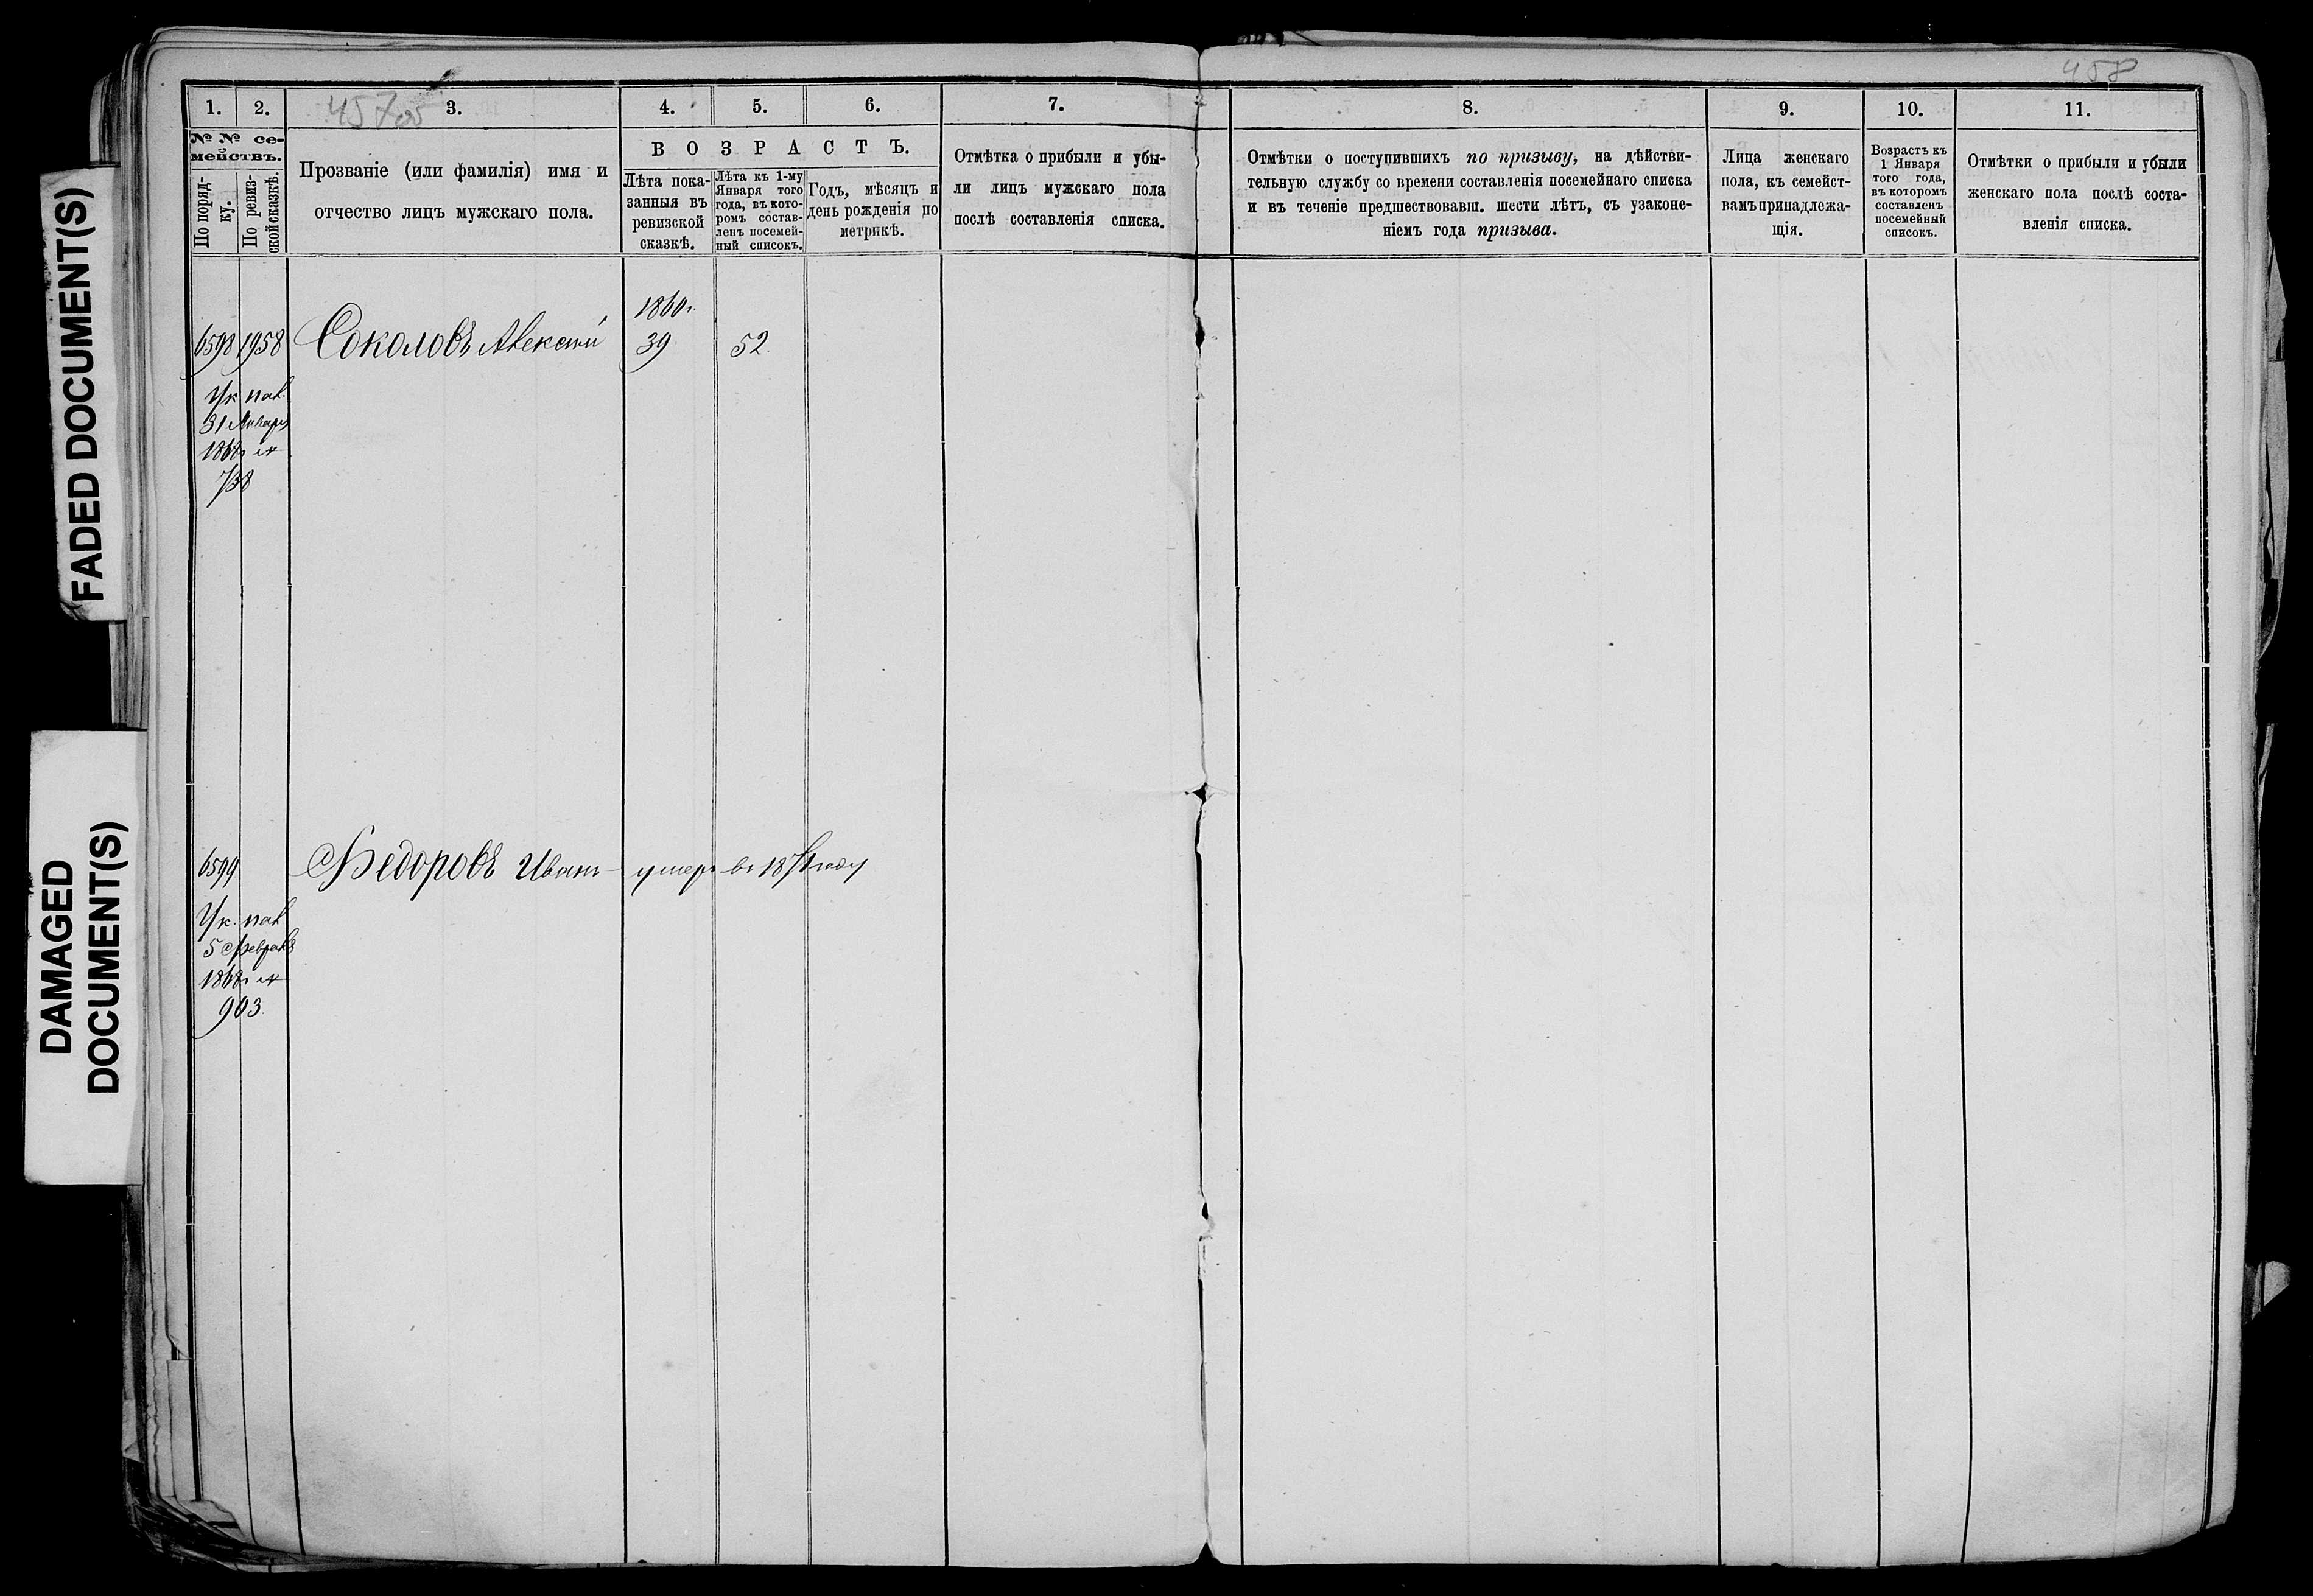 FADED DOCUMENT(S)
DAMAGED
DOCUMENT(S)
458
1.
2.
3.
4.
5.
6.
7.
8.
9.
10.
11.
№ № се-
мействъ.
По поряд-
ку.
По ревиз-
ской сказкѣ.
Прозваніе (или фамилія) имя и
отчество лицъ мужскаго пола.
ВОЗРАСТЪ.
Лѣта пока-
занныя въ
ревизской
сказкѣ.
Лѣта къ 1-му
Января того
года, въ кото-
ромъ состав-
ленъ посемей-
ный списокъ.
Годъ, мѣсяцъ и
день рожденія по
метрикѣ.
Отмѣтка о прибыли и убы-
ли лицъ мужскаго пола
послѣ составленія списка.
Отмѣтки о поступившихъ по призыву, на дѣйстви-
тельную службу со времени составленія посемейнаго списка
и въ теченіе предшествовавш. шести лѣтъ, съ узаконе-
ніемъ года призыва.
Лица женскаго
пола, къ семейст-
вамъ принадлежа-
щія.
Возрастъ къ
1 Января
того года,
въ которомъ
составленъ
посемейный
списокъ.
Отмѣтки о прибыли и убыли
женскаго пола послѣ соста-
вленія списка.
1860г.
6598 1958 Соколовъ Алексѣй 39 52.
Ук. пал.
31 Января
1868г №
738
6599 Ѳедоровъ Иванъ умеръ въ 1871 году
Ук. пал.
5 Февраля
1868г №
903.